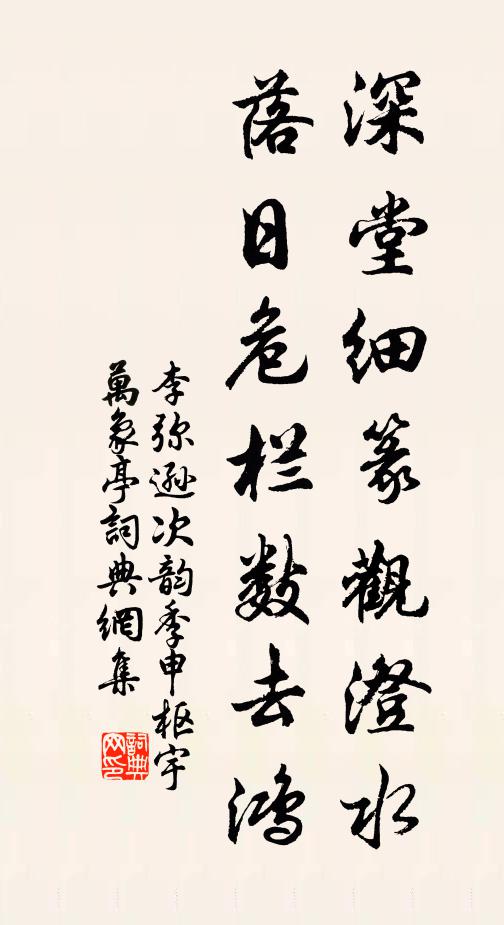 深堂细篆觀澄水
落日危栏数去鸿
李弥逊次韵季申枢宇
萬象亭詞典網集
詞典网印